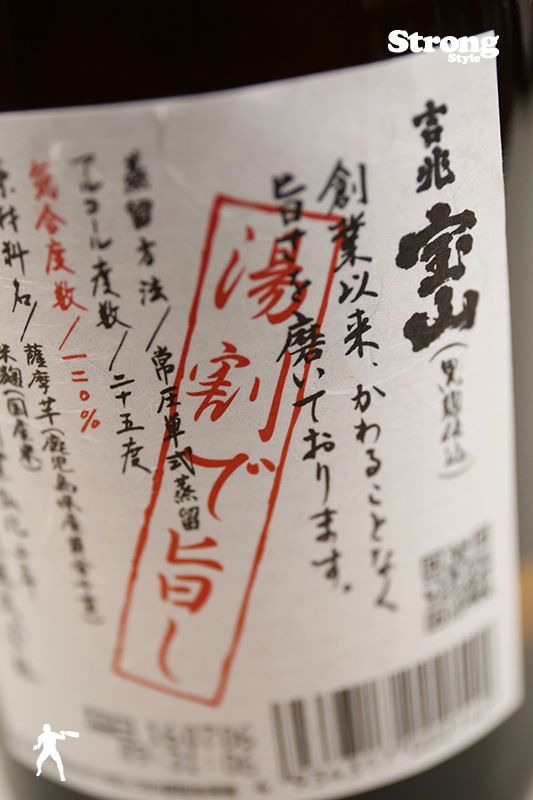 Strong
Style
吉兆
宝山
(黒麹仕込)
創業以来、かわることなく
旨さを磨いております。
湯割で旨し
蒸留方法/常圧単式蒸留
アルコール度数/二十五度
気合度数/一二〇%
原材料名/薩摩芋(鹿児島県産黄金千貫)
米麹(国産米)